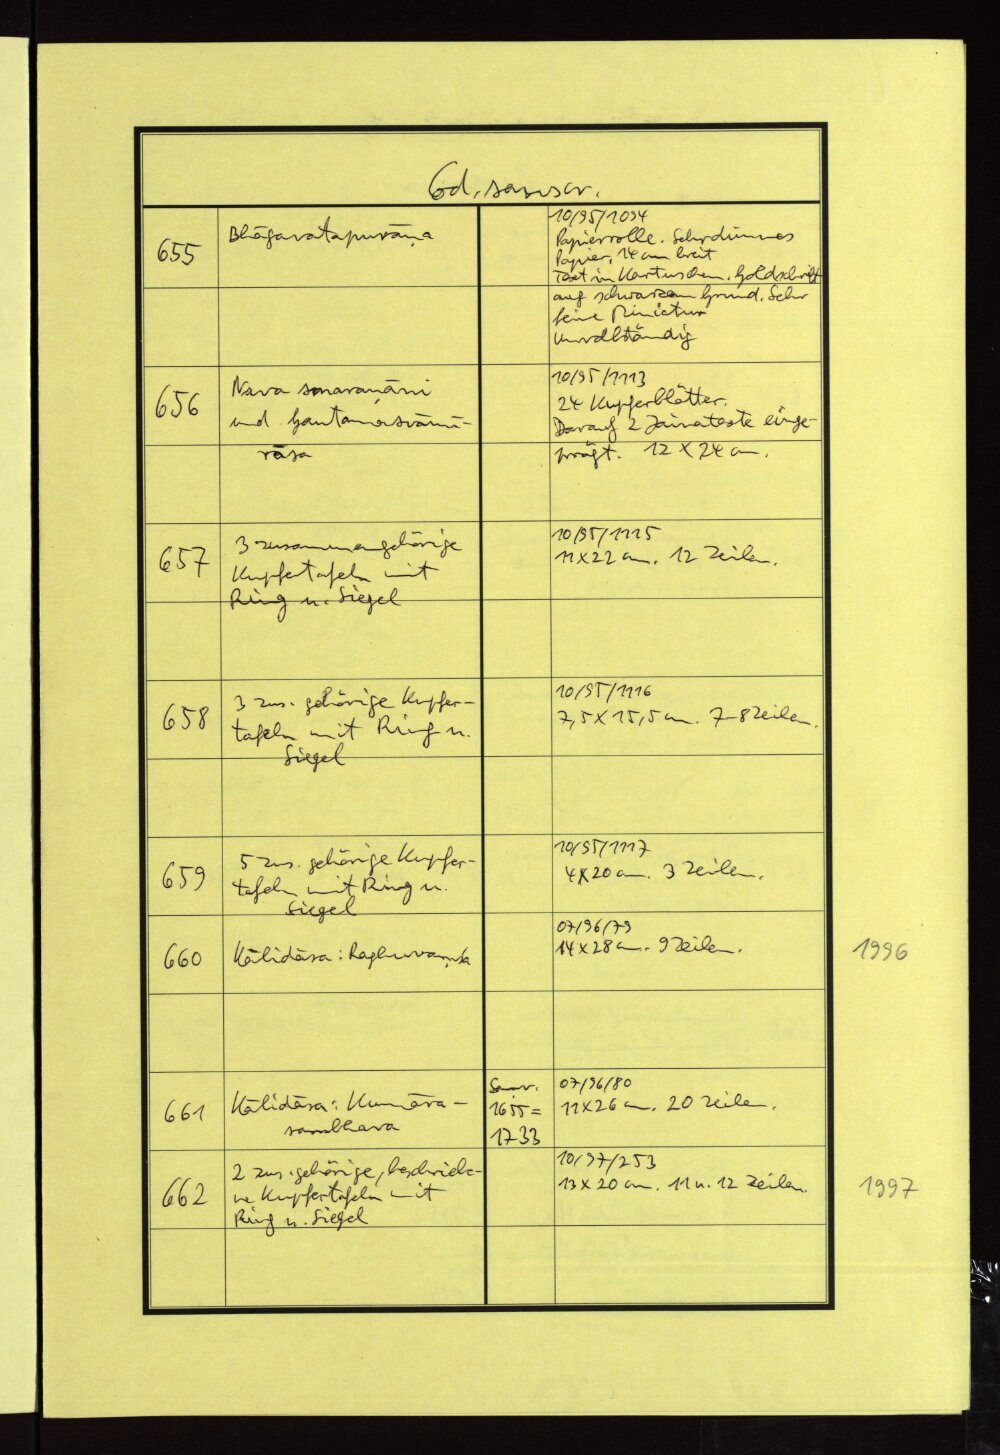 Cod. sanscr.
655
Bhāgavatapurāṇa
10/95/1094
Papierrolle. Sehr dünnes
Papier, 14 cm breit
Text in Kartuschen. Goldschrift
auf schwarzem Grund. Sehr
feine Miniatur
Unvollständig
656
Nava smaraṇāni
und Gautamasvāmi-
rāsa
10/95/1113
24 Kupferblätter.
Darauf 2 Jainatexte einge-
prägt. 12 X 24 cm.
657
3 zusammengehörige
Kupfertafeln mit
Ring u. Siegel
10/95/1115
11 X 22 cm. 12 Zeilen.
658
3 zus. gehörige Kupfer-
tafeln mit Ring u.
Siegel
10/95/1116
7,5 X 15,5 cm. 7-8 Zeilen.
659
5 zus. gehörige Kupfer-
tafeln mit Ring u.
Siegel
10/95/1117
4 X 20 cm. 3 Zeilen.
660
Kālidāsa: Raghuvaṃśa
07/96/79
14 X 28 cm. 9 Zeilen.
1996
661
Kālidāsa: Kumāra-
sambhava
Samv.
1655 =
1733
07/96/80
11 X 26 cm. 20 Zeilen.
662
2 zus. gehörige, beschriebe-
ne Kupfertafeln mit
Ring u. Siegel
10/97/253
13 X 20 cm. 11 u. 12 Zeilen.
1997